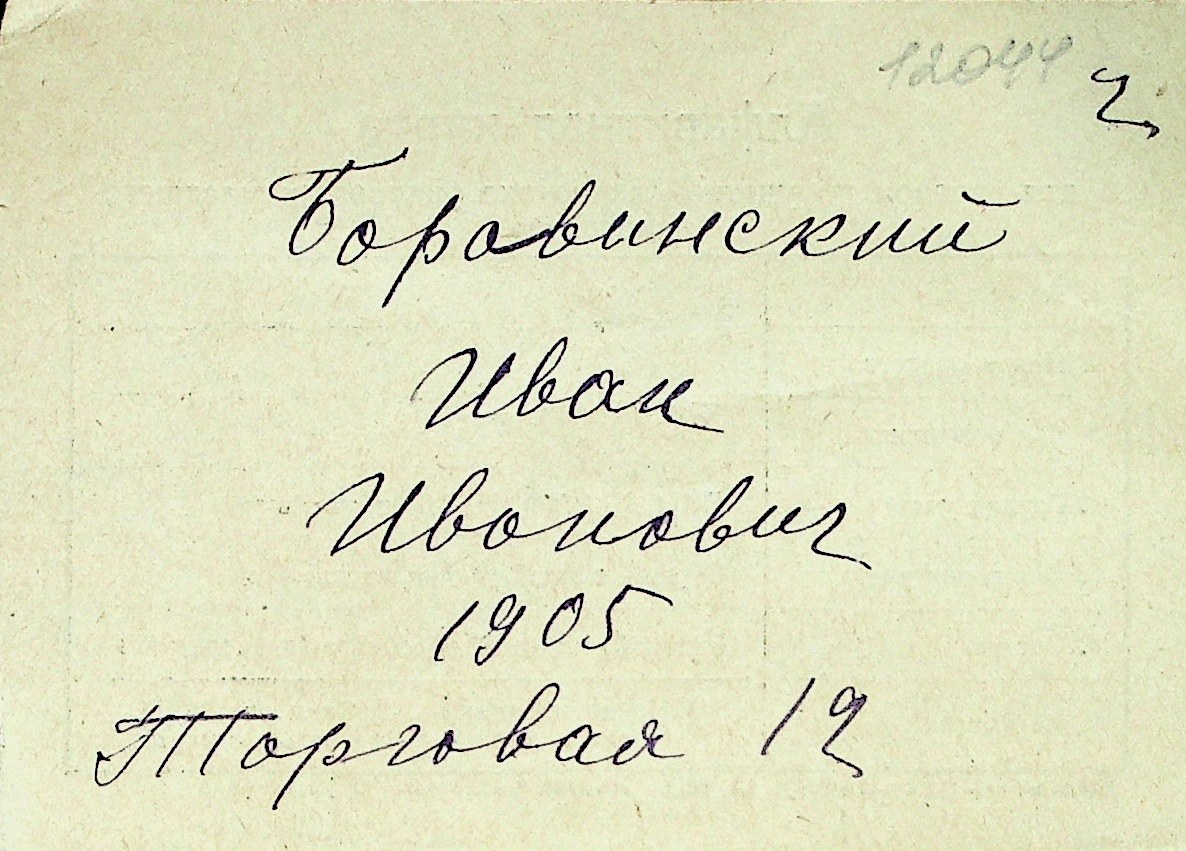 12044
ч.
Боровинский
Иван
Иванович
1905
Торговая 19